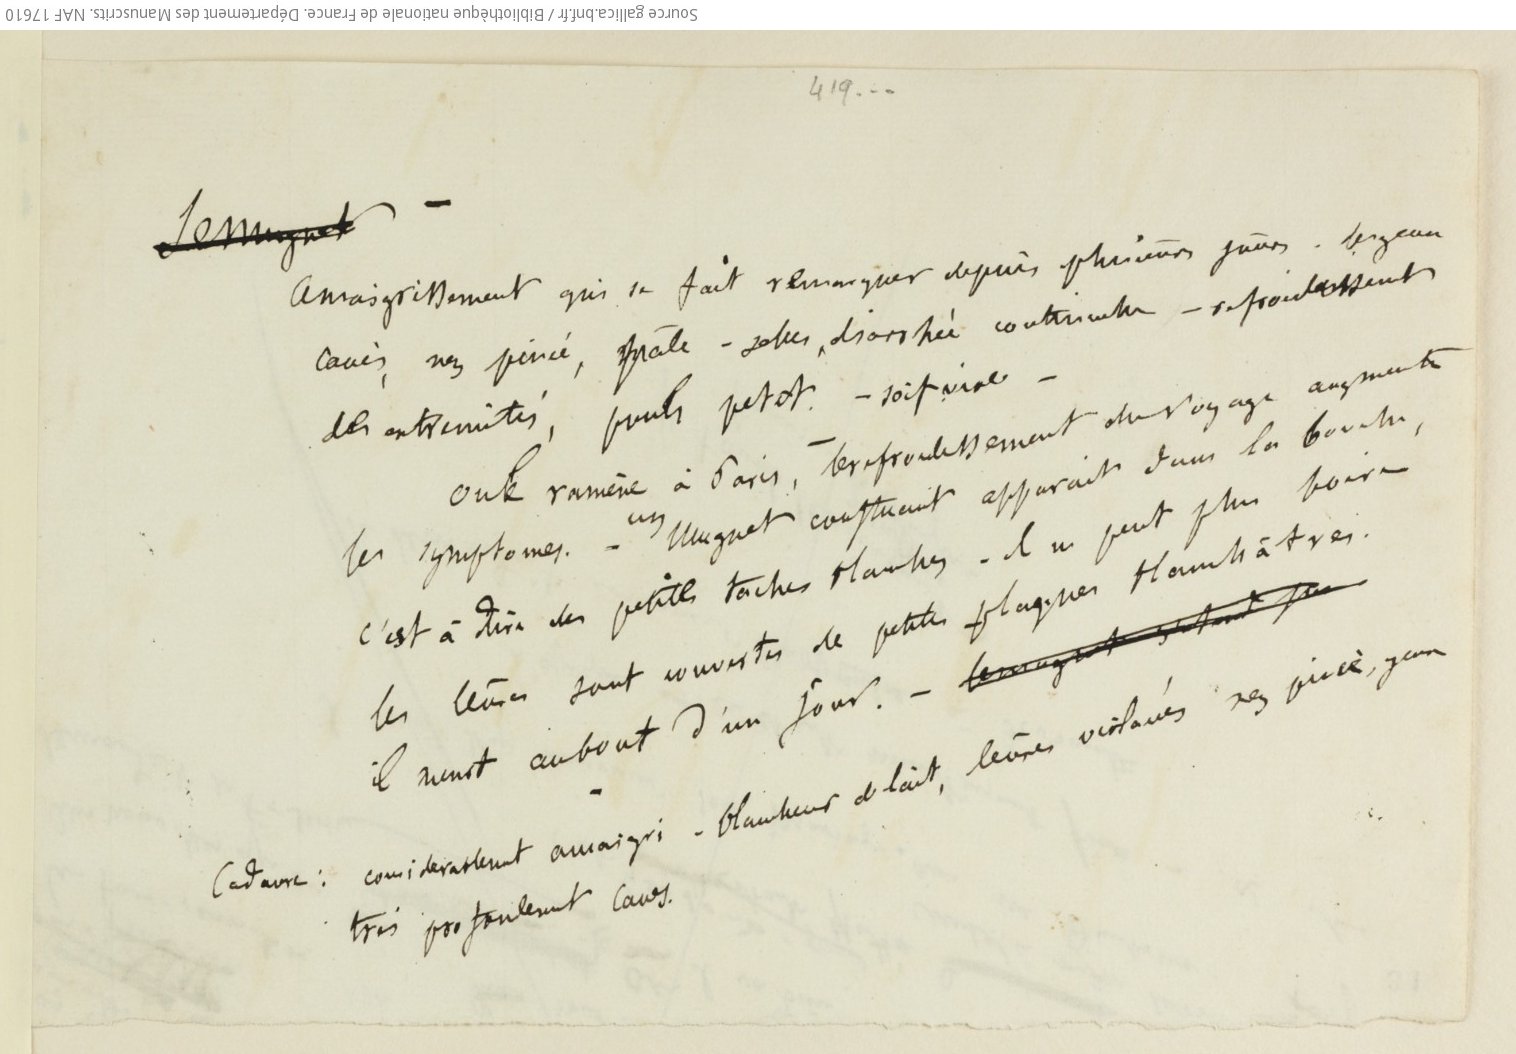 Source gallica.bnf.fr / Bibliothèque nationale de France. Département des Manuscrits. NAF 17610
419...
Le Muguet —
Amaigrissement qui se fait remarquer depuis plusieurs jours . les yeux
caves, nez pincé, pâle - selles, diarrhée continuelle - refroidissent
des extremités, pouls petit. - soif vive -
on le ramène à Paris, le refroidissement du voyage augmente
les symptomes. - un Muguet confluent apparait dans la bouche,
c'est à dire des petites taches blanches - il ne peut plus boire
les lèvres sont couvertes de petites plaques blanchâtres.
il meurt au bout d'un jour. - le muguet s'étend
-
Cadavre : considerablemt amaigri - blancheur de lait, lèvres violacées nez pincé, yeux
très profondemt caves.